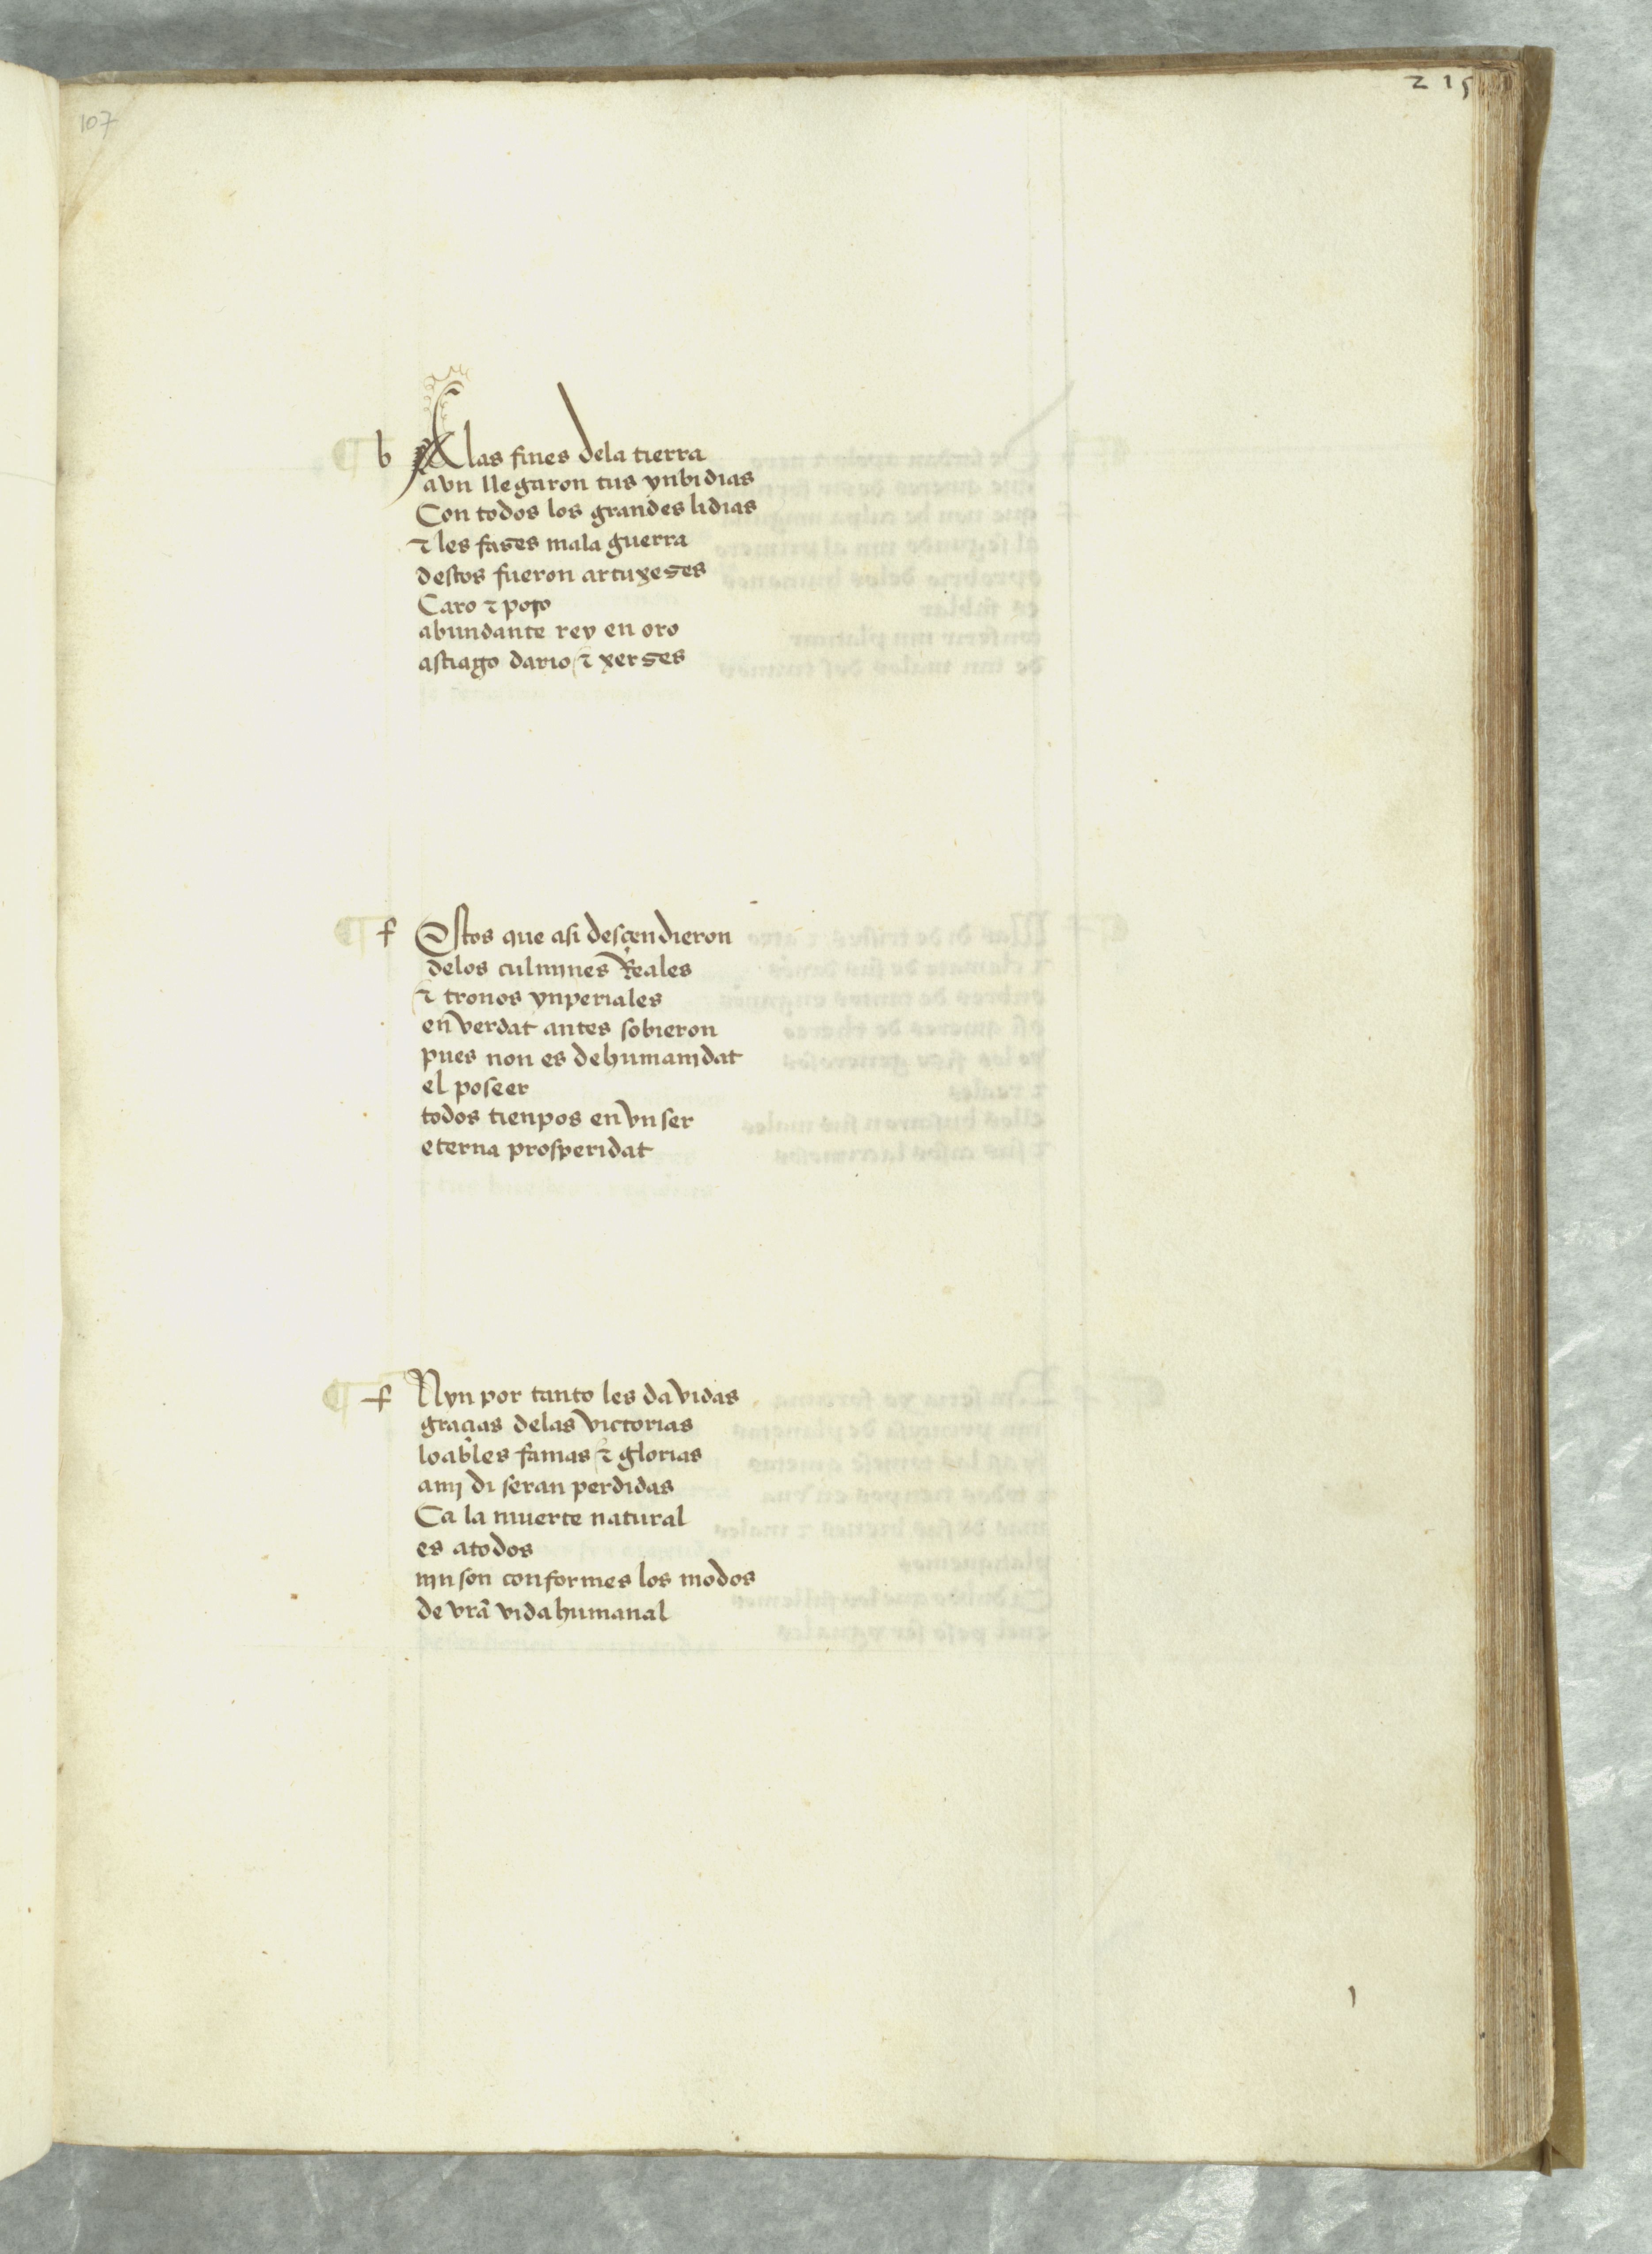 107
215
b Alas fines dela tierra
avn llegaron tus ynbidias
Con todos los grandes lidias
⁊ les fazes mala guerra
destos fueron artuxeses
Caro ⁊ poro
abundante rey en oro
astiago dario ⁊ xerses
f Estos que asi desçendieron
delos culmjnes Reales
⁊ tronos ynperiales
en verdat antes sobieron
pues non es de humanjdat
el poseer
todos tienpos en vn ser
eterna prosperidat
f Nyn por tanto les da vidas
graçias delas victorias
loables famas ⁊ glorias
amj di seran perdidas
Ca la muerte natural
es atodos
njn son conformes los modos
de vrã vida humanal